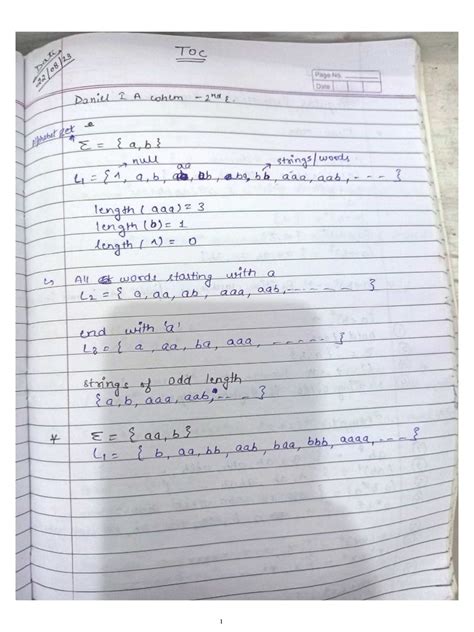 Date
22/08/23
TOC
Page No.
Date
Daniel I A Cohen - 2nd E.
Alphabet set
Σ = { a, b }
null
strings/words
L1 = { Λ, a, b, aa, ab, ba, bb, aaa, aab, --- }
length (aaa) = 3
length (b) = 1
length (Λ) = 0
All words starting with a
L2 = { a, aa, ab, aaa, aab, ------ }
end with 'a'
L3 = { a, aa, ba, aaa, ------ }
strings of odd length
{ a, b, aaa, aab, ---- }
* Σ = { aa, b }
L1 = { b, aa, bb, aab, baa, bbb, aaaa, ---- }
1